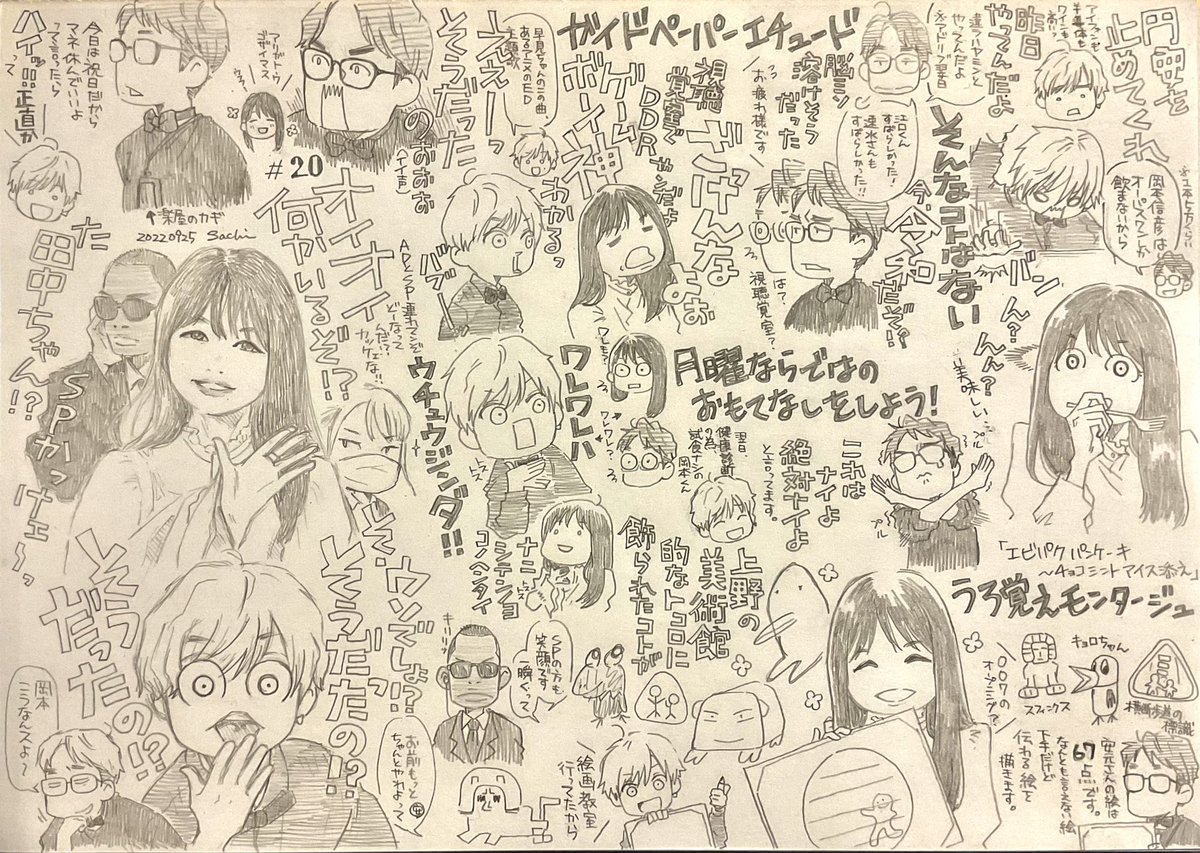 円安を
止めてくれ
アイフォンも
半導体も
ワインも
高い
昨日
やってんだよ
違うハヤミンと
やってんだよ
ガイドペーパーエチュード
脳ミソ
溶けそう
だった
お疲れ様です
視聴
覚室で
DDR
やんだよ
ゲーム
ボーイ神
早見ちゃんのこの曲
あるアニメのED
主題歌
ふえぇーっ
そうだった
のぉぉぉ
イイ声
アリガトウ
ゴザイマス
今日は祝日だから
マネ休んでいいよ
って言ったら
ハイッ!!!って
正直か
江口くん
すばらしかった!
速水さんも
すばらしかった!!
そんなコトはない
岡本信彦は
オーパスワンしか
飲まないから
バン
今、令和だぞ!?
ざけんなよぉ
は?
視聴覚室?
わかるっ
バブー
#20
↑楽屋のカギ
20220925 Sachi
オイオイ
何かいるぞ!?
APとSP連れてんぞ
どーなって
んだ!?
カッケェな!!
た
田中ちゃん!?
SPかっけェ〜っ
ん?
んん?
美味しい…
プル
プル
「エビパクパーケーキ
〜チョコミントアイス添え」
月曜ならではの
おもてなしをしよう!
これは
ナイよ
絶対ナイよ
と言ってます。
翌日
健康診断
の為
試食ナシの
岡本くん
ワレワレハ
ワレワレ?
ウチュウジンダ!!
トストス
ナニ
シテンショ
コノヘンタイ
上野の
美術館
的なトコロに
飾られたコトが
うろ覚えモンタージュ
キョロちゃん
スフィンクス
横断歩道の
標識
007の
オープニング?
安元さんの絵は
67点です。
なんとも言えない絵
下手だけど
伝わる絵を
描きます。
絵画教室
行ってたから
SPの方も
笑顔です
一瞬ぐって
キリッ
そ、
ウソでしょ!?
そうだったの!?
そう
だったの!?
お前もっと
ちゃんとやれよって
岡本
こうなんスよ〜